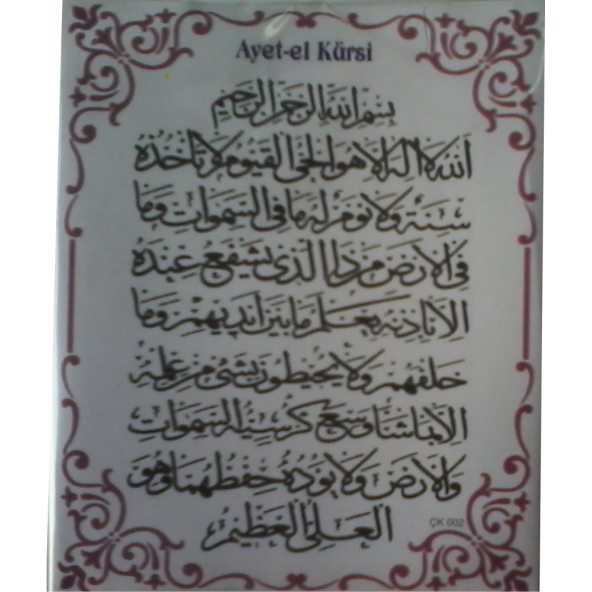 Ayet-el Kürsi
بسم الله الرحمن الرحيم
الله لا اله الا هو الحي القيوم لا تأخذه
سنة ولا نوم له ما في السموات وما
في الارض من ذا الذي يشفع عنده
الا باذنه يعلم ما بين ايديهم وما
خلفهم ولا يحيطون بشئ من علمه
الا بما شاء وسع كرسيه السموات
والارض ولا يؤده حفظهما وهو
العلي العظيم
ÇK 002